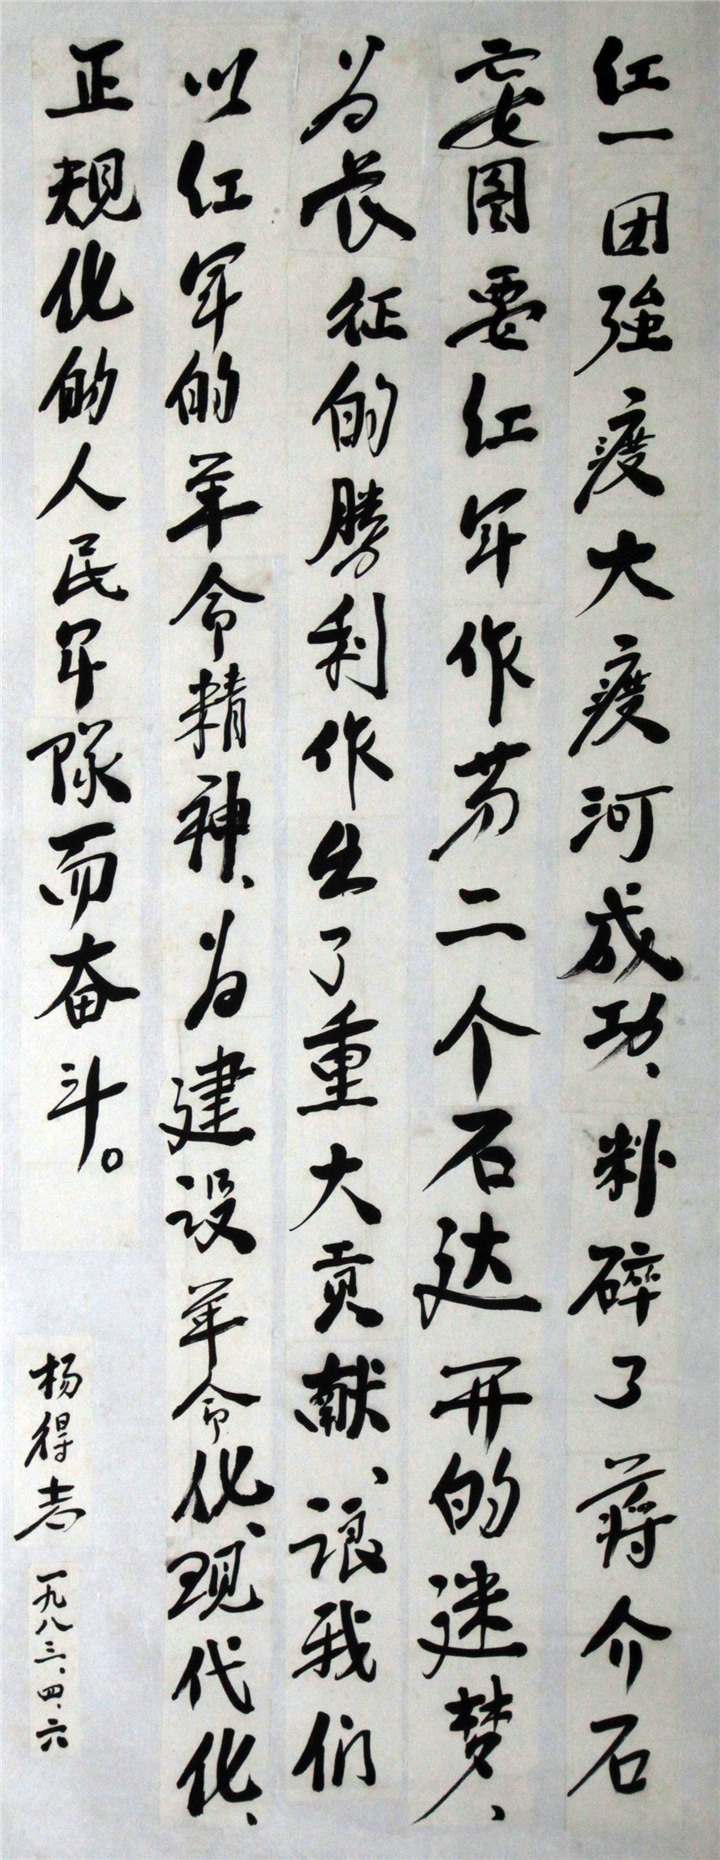 红一团強度大度河成功、粉碎了蒋介石
妄图要红军作第二个石达开的迷梦、
为长征的勝利作出了重大贡献、让我们
以红军的革命精神、为建设革命化、现代化、
正规化的人民军隊而奋斗。
杨得志
一九八三、四、六